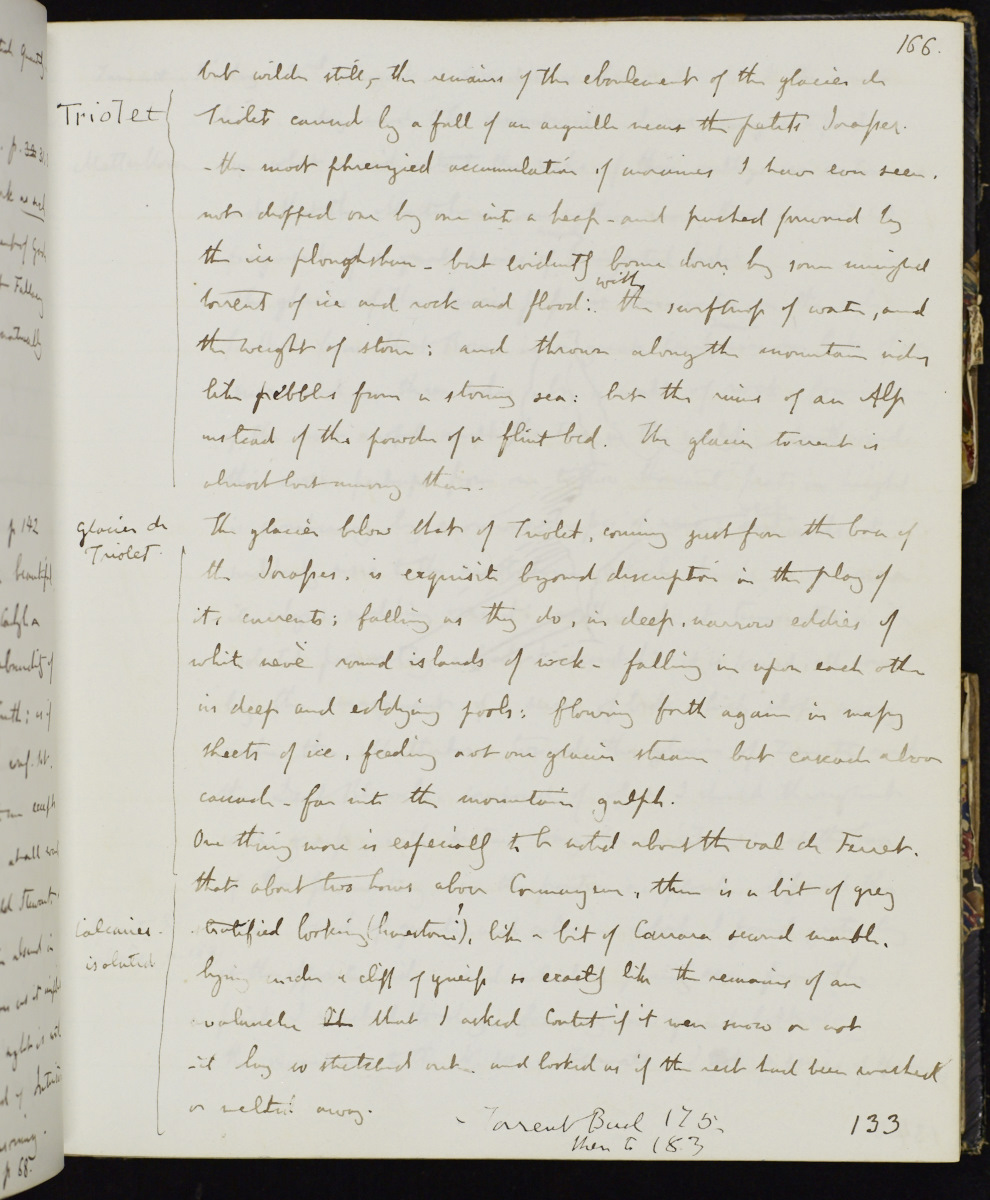 166.
but wilder still, the remains of the eboulement of the glacier de
Triolet
Triolet caused by a fall of an aiguille near the petits Jorasses.
- the most phrenzied accumulation of moraines I have ever seen.
not dropped one by one into a heap - and pushed forward by
the ice ploughshare - but evidently borne down by some mingled
torrent of ice and rock and flood: with the swiftness of water, and
the weight of stone: and thrown along the mountain sides
like pebbles from a stormy sea: but the ruins of an Alp
instead of the powder of a flint bed. The glacier torrent is
almost lost among them.
Glacier de
Triolet.
The glacier below that of Triolet, coming just from the base of
the Jorasses, is exquisite beyond description in the play of
its currents; falling as they do, in deep, narrow eddies of
white nevè round islands of rock - falling in upon each other
in deep and eddying pools: flowing forth again in massy
sheets of ice, feeding not one glacier stream but cascade above
cascade - far into the mountain gulph.
One thing more is especially to be noted about the val de Ferret.
that about two hours above Cormayeur, there is a bit of grey
Calcaires.
isolated
stratified looking (limestone?), like a bit of Carrara second marble,
lying under a cliff of gneiss so exactly like the remains of an
avalanche that I asked Coutet if it were snow or not
- it lay so stretched out. and looked as if the rest had been washed
or melted away.
- Torrent Bed 175.
then to 183
133
p 142
p 68